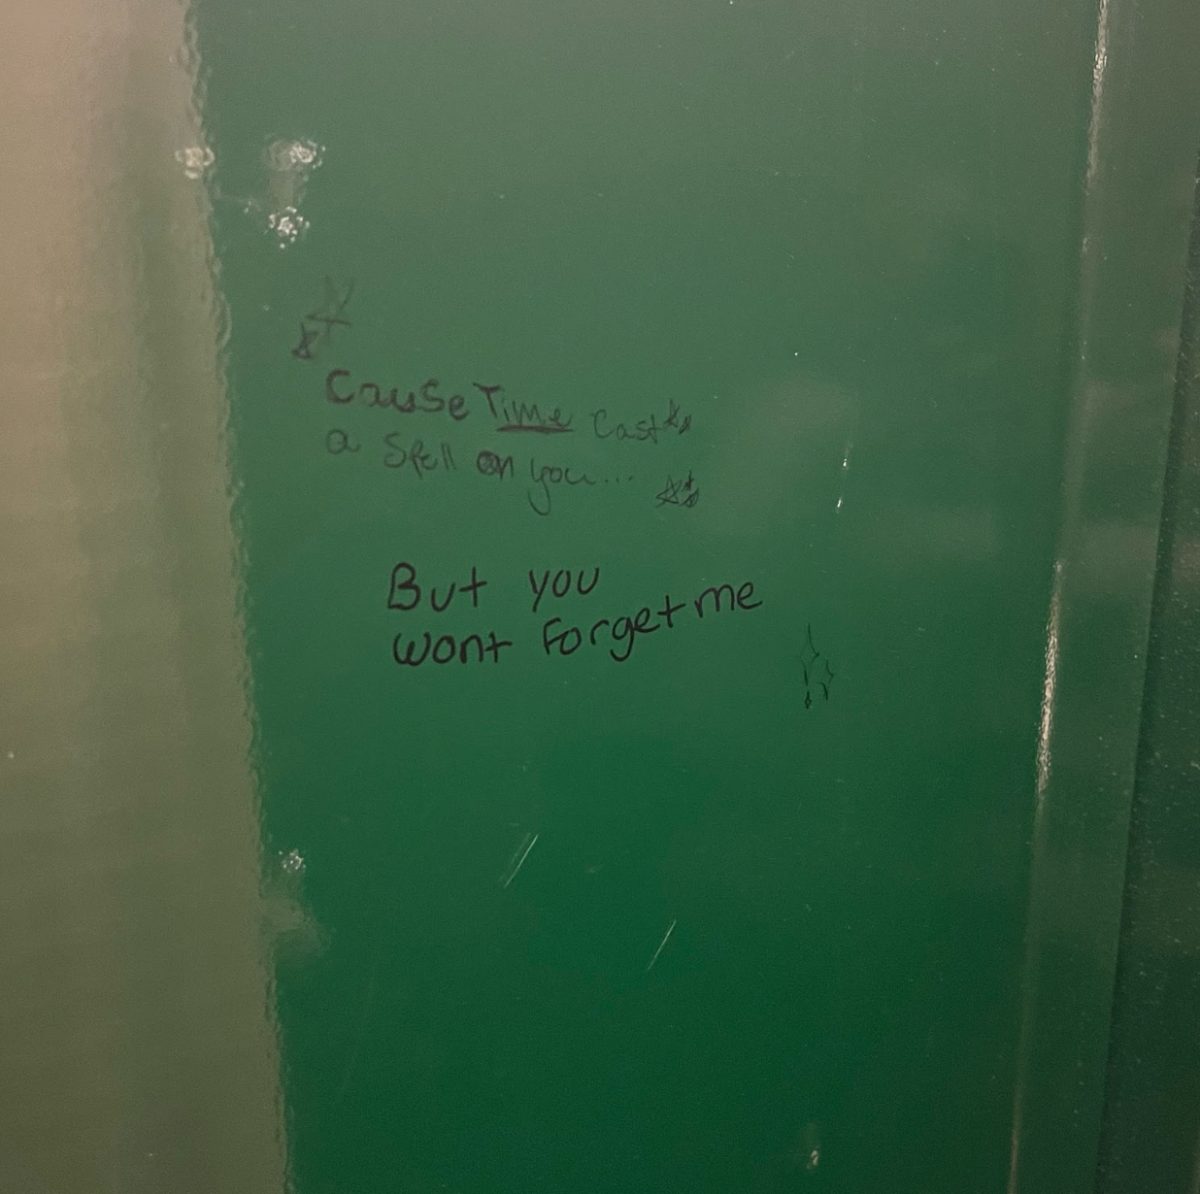 Cause Time Cast
a Spell on you...
But you
wont Forget me